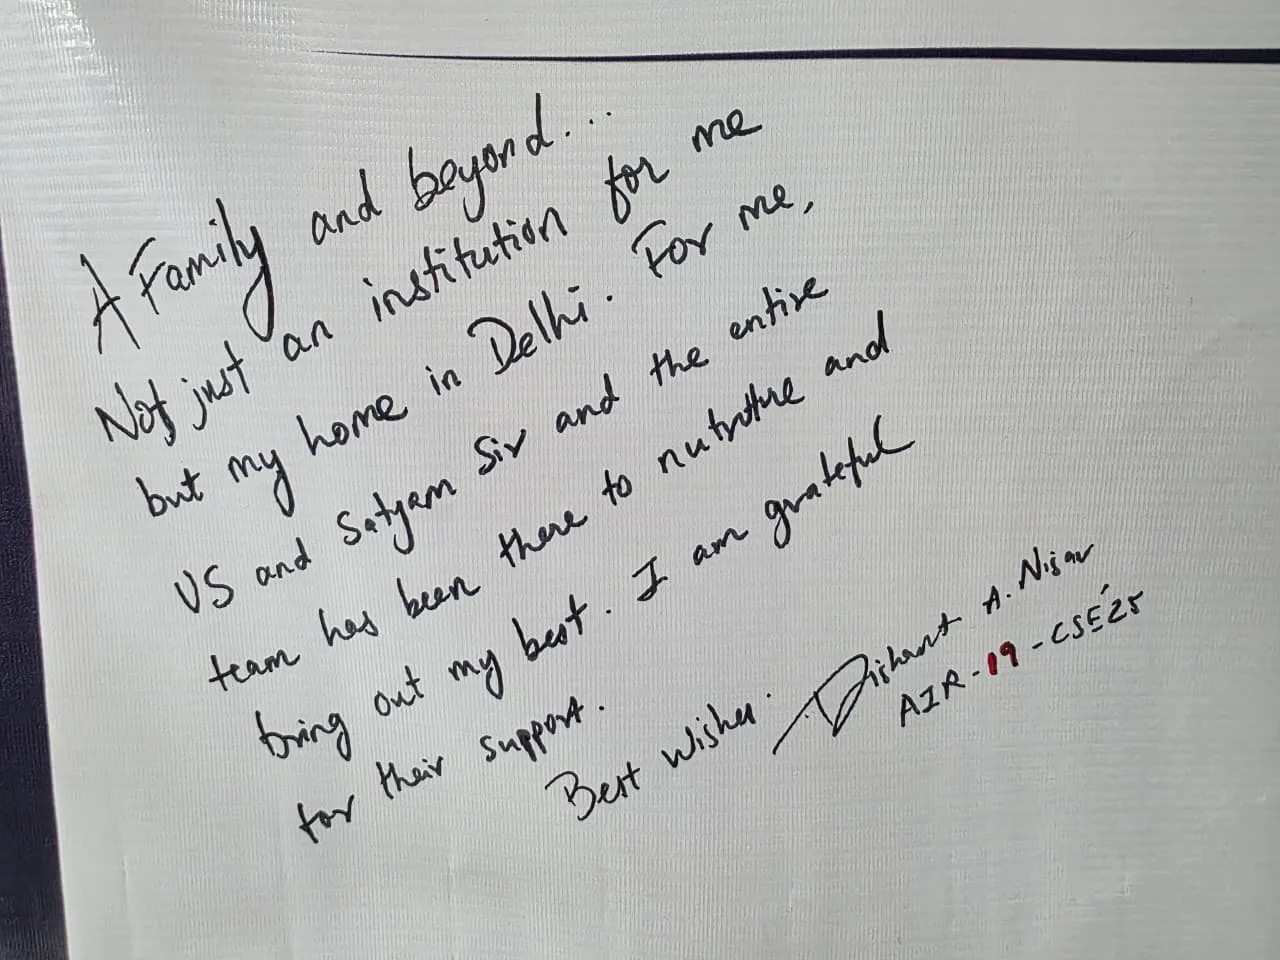 A Family and beyond...
Not just an institution for me
but my home in Delhi. For me,
VS and Satyam Sir and the entire
team has been there to nutruture and
bring out my best. I am grateful
for their support.
Best Wishes.
Dishant A. Nisar
AIR-19-CSE'25